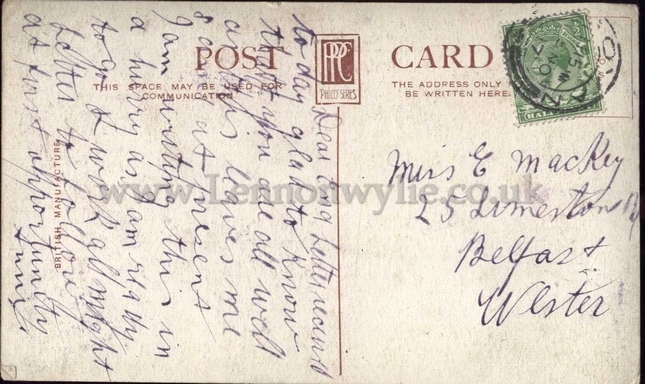 POST CARD
THIS SPACE MAY BE USED FOR
COMMUNICATION
PPC
PHILCO SERIES
THE ADDRESS ONLY
BE WRITTEN HERE
BRITISH MANUFACTURE
Dear Letter received
today glad to know
that you are all well
as this leaves me
good at present
I am writing this in
a hurry as I am really
to go to work all night
letter to follow
at first opportunity
Miss E Mackey
25 Limeston
Belfast
Ulster
www.Lennonwylie.co.uk